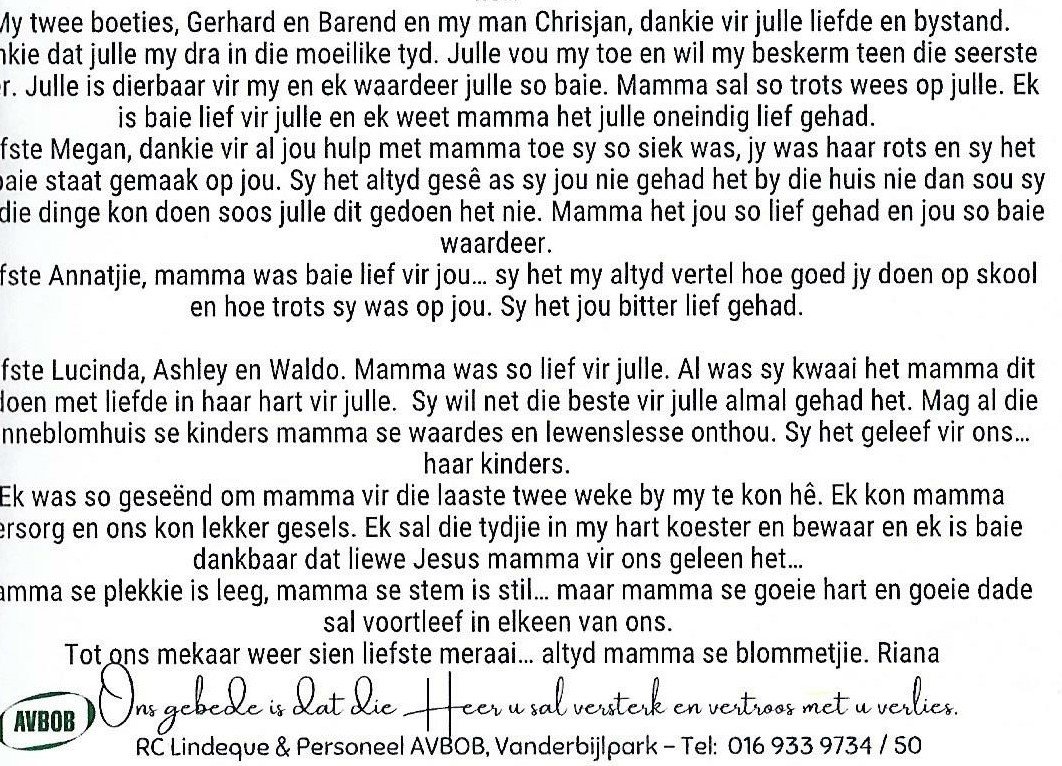 My twee boeties, Gerhard en Barend en my man Chrisjan, dankie vir julle liefde en bystand.
nkie dat julle my dra in die moeilike tyd. Julle vou my toe en wil my beskerm teen die seerste
r. Julle is dierbaar vir my en ek waardeer julle so baie. Mamma sal so trots wees op julle. Ek
is baie lief vir julle en ek weet mamma het julle oneindig lief gehad.
fste Megan, dankie vir al jou hulp met mamma toe sy so siek was, jy was haar rots en sy het
baie staat gemaak op jou. Sy het altyd gesê as sy jou nie gehad het by die huis nie dan sou sy
die dinge kon doen soos julle dit gedoen het nie. Mamma het jou so lief gehad en jou so baie
waardeer.
fste Annatjie, mamma was baie lief vir jou... sy het my altyd vertel hoe goed jy doen op skool
en hoe trots sy was op jou. Sy het jou bitter lief gehad.
fste Lucinda, Ashley en Waldo. Mamma was so lief vir julle. Al was sy kwaai het mamma dit
doen met liefde in haar hart vir julle. Sy wil net die beste vir julle almal gehad het. Mag al die
nneblomhuis se kinders mamma se waardes en lewenslesse onthou. Sy het geleef vir ons...
haar kinders.
Ek was so geseënd om mamma vir die laaste twee weke by my te kon hê. Ek kon mamma
ersorg en ons kon lekker gesels. Ek sal die tydjie in my hart koester en bewaar en ek is baie
dankbaar dat liewe Jesus mamma vir ons geleen het...
amma se plekkie is leeg, mamma se stem is stil... maar mamma se goeie hart en goeie dade
sal voortleef in elkeen van ons.
Tot ons mekaar weer sien liefste meraai... altyd mamma se blommetjie. Riana
Ons gebede is dat die Heer u sal versterk en vertroos met u verlies.
AVBOB
RC Lindeque & Personeel AVBOB, Vanderbijlpark – Tel: 016 933 9734 / 50